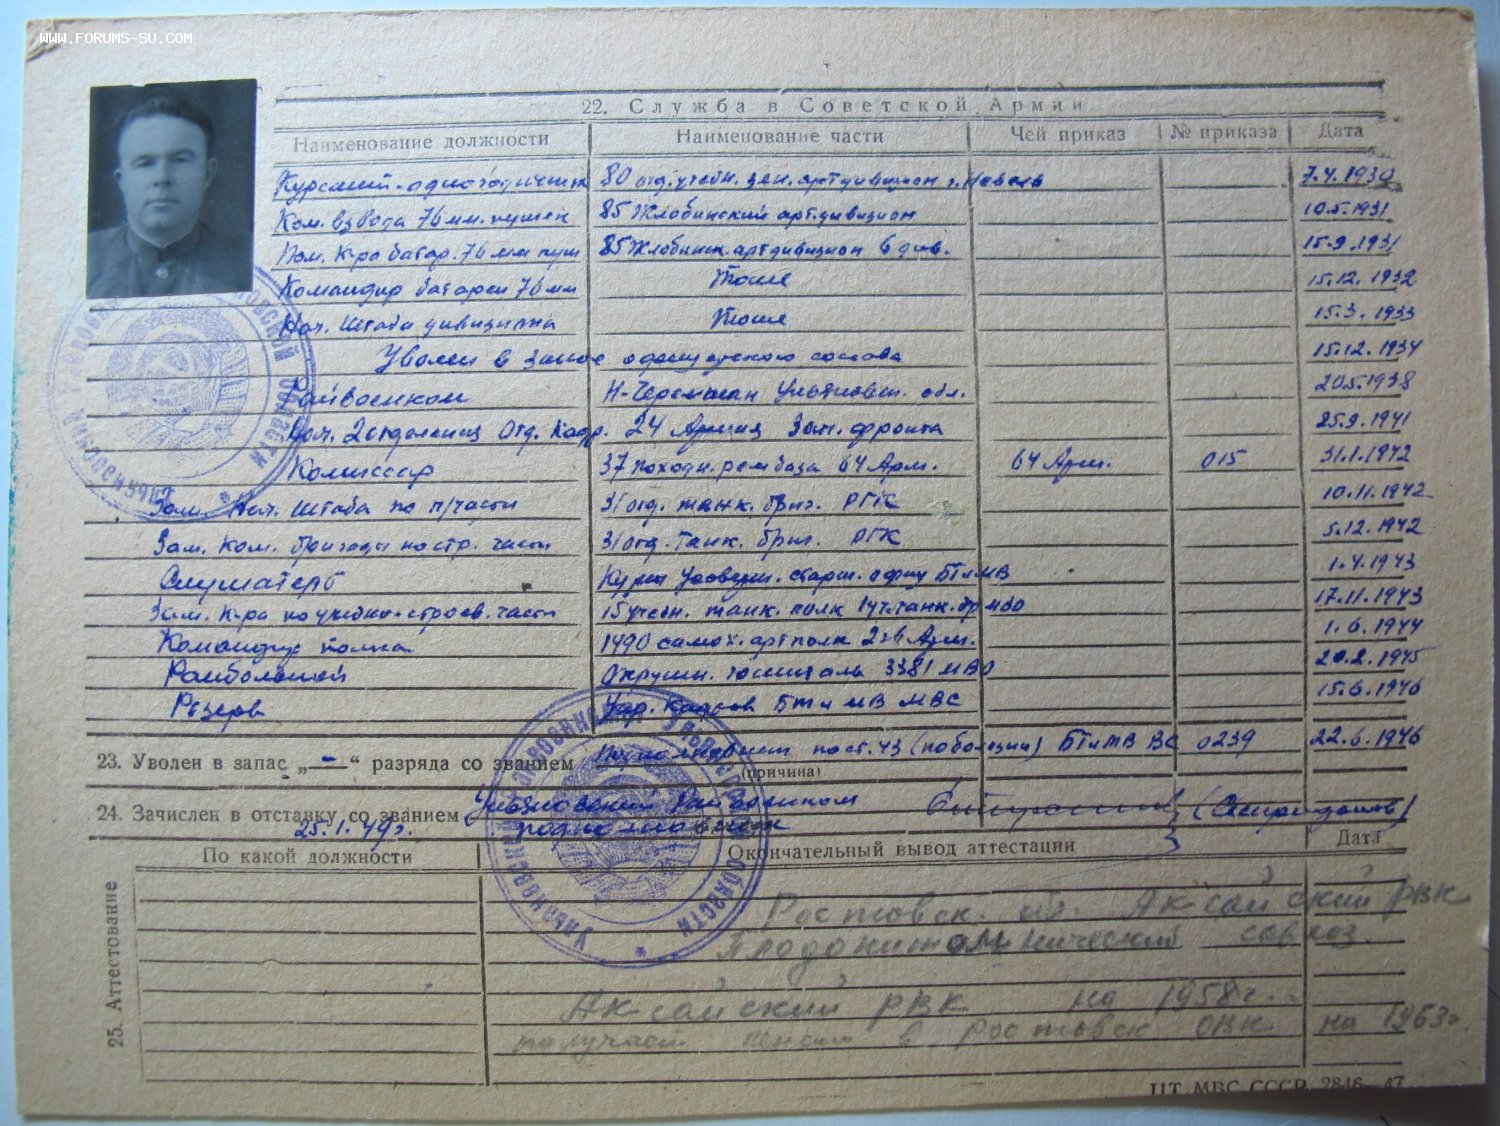 WWW.FORUMS-SU.COM
22. Служба в Советской Армии
Наименование должности Наименование части Чей приказ № приказа Дата
Курсант-одногодичник 80 отд. учебн. зен. артдивизион г. Невель
Ком. взвода 76 мм. пушек 85 Жлобинский артдивизион 10.5.1931
Пом. к-ра батар. 76 мм пуш 85 Жлобинск артдивизион 6 див. 15.9.1931
Командир батареи 76 мм Тоже 15.12.1932
Нач. Штаба дивизиона Тоже 15.3.1933
Уволен в запас состава 15.12.1934
Райвоенком Н-Черемшан Ульяновск. обл. 20.5.1938
Нач. 2 отделения Отд. Кадр. 24 Армия Зап. фронта 25.9.1941
Комиссар 37 походн. рембаза 64 Арм. 64 Арм. 015 31.1.1942
Зам. Нач. Штаба по п/части 31 отд. танк. бриг. РГК 10.11.1942
Зам. Ком. бригады по стр. части 31 отд. танк. бриг. РГК 5.12.1942
Слушатель Курсы Усоверш. старш. офиц БТиМВ 1.4.1943
Зам. к-ра по учебно-строев. части 15 учебн. танк. полк 1 уч. танк. бр МВО 17.11.1943
Командир полка 1490 самох. артполк 2 гв Арм. 1.6.1944
Ранбольной Окружн. госпиталь 3381 МВО 20.2.1945
Резерв Упр. Кадров БТ и МВ МВС 15.6.1946
23. Уволен в запас „—“ разряда со званием Подполковник пост. 43 (по болезни) БТиМВ ВС 0239 22.6.1946
(причина)
24. Зачислен в отставку со званием Ульяновский Райвоенком (Спиридонов)
25.1.49г. подполковник
По какой должности Окончательный вывод аттестации Дата
25. Аттестование
Ростовск. об. Аксайский РВК
совхоз.
Аксайский РВК на 1958 г.
получает пенсию в Ростовск ОВК на 1963 г.
ЦТ МВС СССР 2846—47